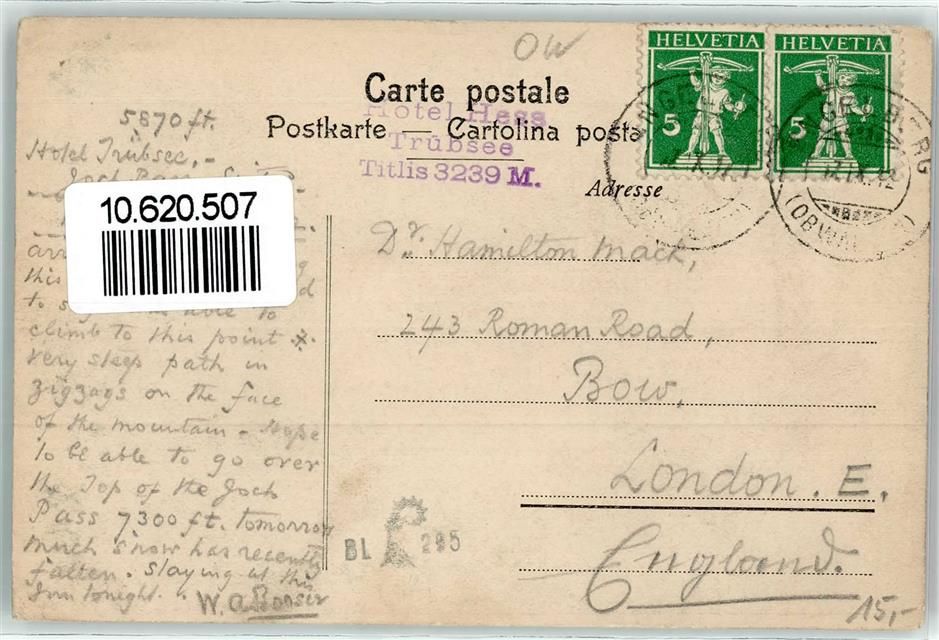 OW
HELVETIA
HELVETIA
5
5
Carte postale
Postkarte — Cartolina posta
Hotel Hess
Trübsee
Titlis 3239 M.
Adresse
(OBWA
5870 ft.
Hotel Trübsee, -
10.620.507
this
to able to
climb to this point
very steep path in
zigzags on the face
of the mountain - Hope
to be able to go over
the Top of the Joch
Pass 7300 ft. tomorrow
much snow has recently
fallen. Staying at this
Inn tonight.
W. A.
Dr. Hamilton Mack,
243 Roman Road,
Bow,
London. E,
England.
BL 295
15,-